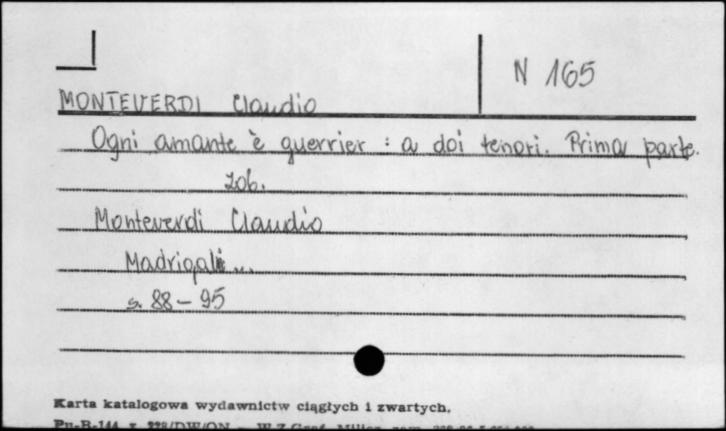 N 165
MONTEVERDI Claudio
Ogni amante è guerrier : a doi tenori. Prima parte.
zob.
Monteverdi Claudio
Madrigali ...
s. 88 – 95
Karta katalogowa wydawnictw ciągłych i zwartych.
Pu-B-144